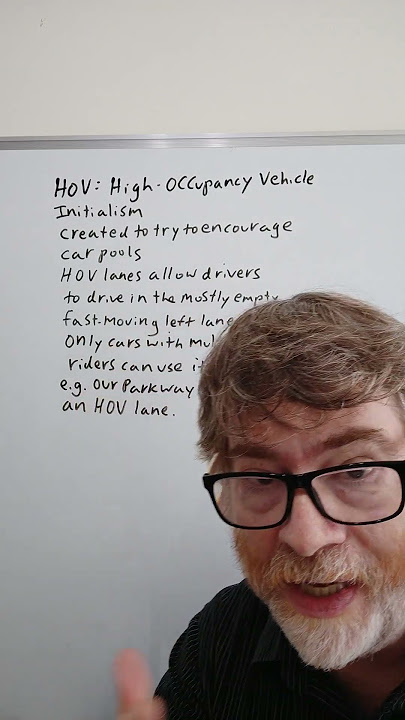 HOV: High-Occupancy Vehicle
Initialism
created to try to encourage
car pools
HOV lanes allow drivers
to drive in the mostly empty
fast-moving left lane
Only cars with
riders can use
e.g. our Parkway
an HOV lane.